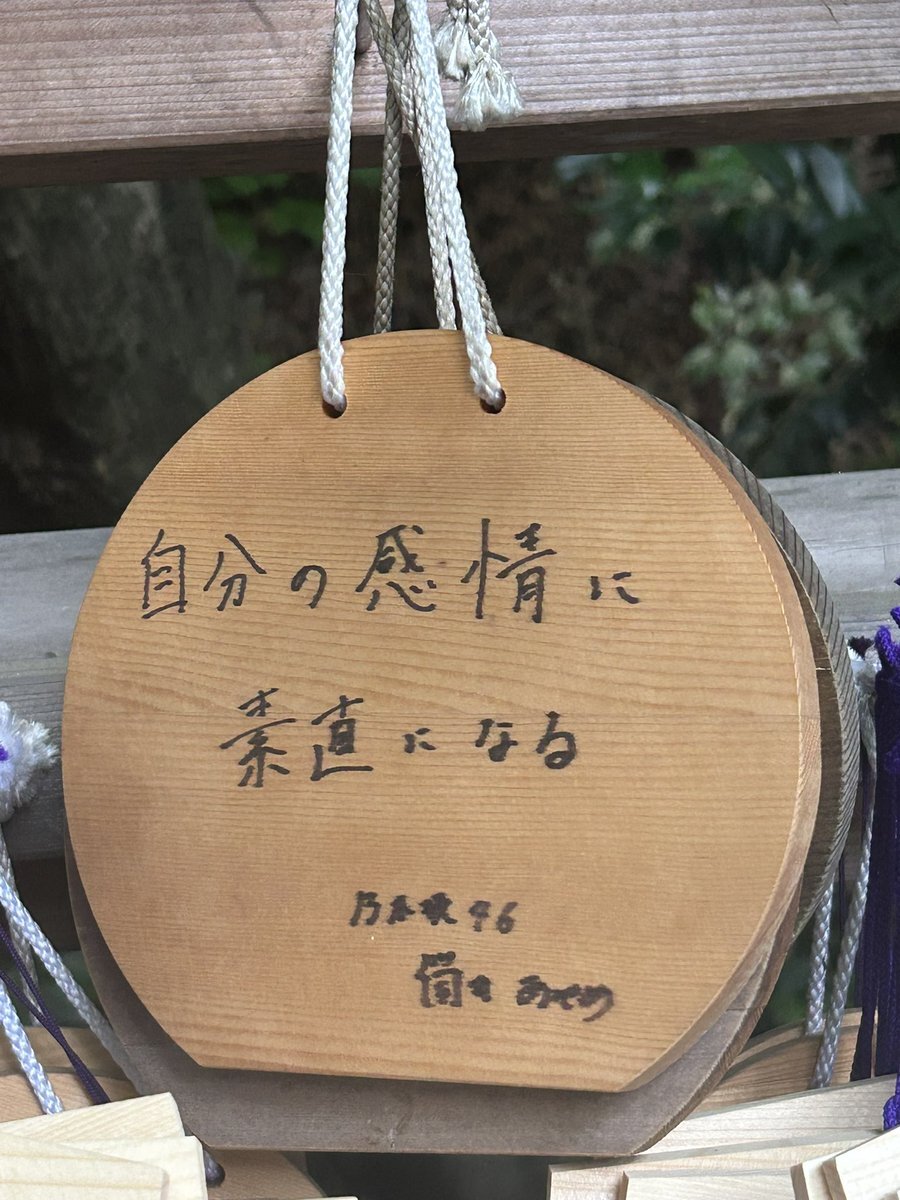 自分の感情に
素直になる
乃木坂46
筒井あやめ